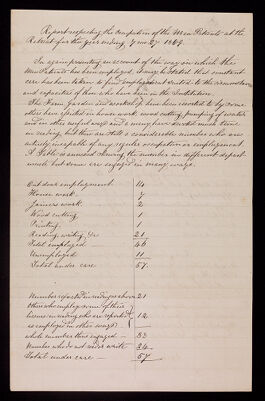 Report respecting the occupation of the Men Patients at the
Retreat for the year ending, 7 mo 27 1869.
In again presenting an account of the way in which the
Men Patients has been employed, it may be stated that constant
care has been taken to find employment suited to the inclinations
and capacities of those who have been in the Institution.
The Farm, Garden, and workshop have been resorted to by some
others have assisted in house work, wood cutting, pumping of water
and in other useful ways and a many have availed much time
in reading, but there are still a considerable number who are
actually incapable of any regular occupation or employment
A Table is annexed shewing the number in different depart
ments but some are engaged in many ways.
Out door employments 14
House work 7
Joiners work 2
Wood cutting 1
Printing 1
Reading, writing &c 21
Total employed 46
Unemployed 11
Total under care 57.
Number reported in reading as above 21
Others who employ some of their
leisure in reading who are reported 12
as employed in other ways
whole number thus engaged — 33
Number who do not read or write 24
Total under care — 57